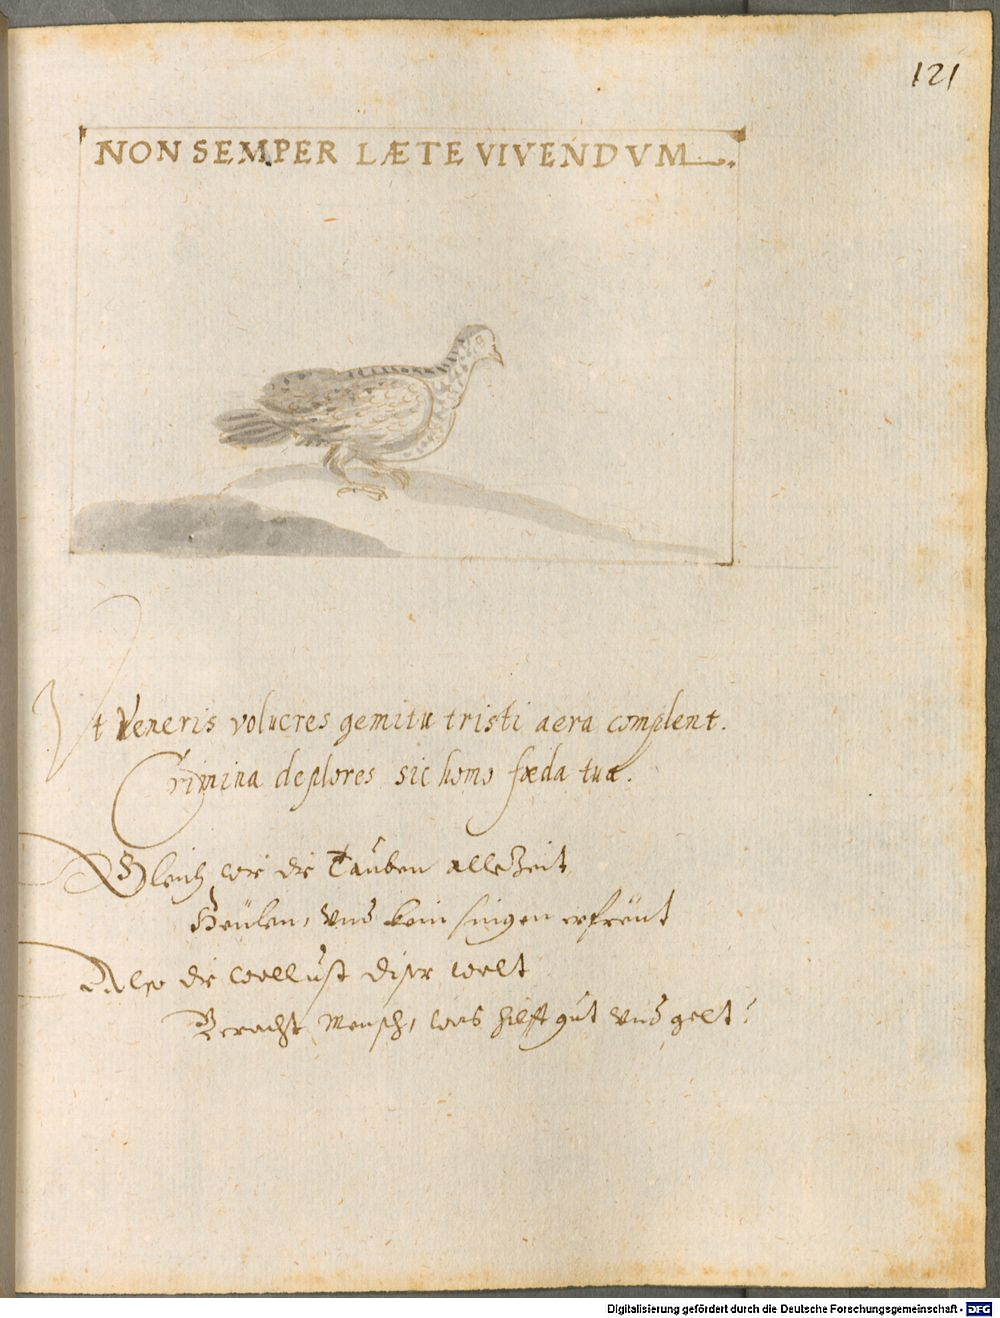 121
NON SEMPER LÆTE VIVENDVM
Vt Veneris volucres gemitu tristi aera complent.
Crimina deplores sic homo fœda tua.
Gleich wie die Tauben alle Zeit
Heülen, vnd kein singen erfreüt
Also die wollust diser welt
Veracht Mensch, was hilfft gut vnd gelt?
Digitalisierung gefördert durch die Deutsche Forschungsgemeinschaft - DFG